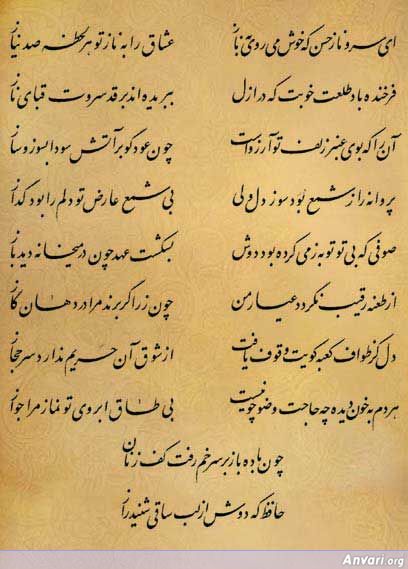 ای سرو ناز حسن که خوش می روی به ناز عشاق را به ناز تو هر لحظه صد نیاز
فرخنده باد طلعت خوبت که در ازل ببریده اند بر قد سروت قبای ناز
آن را که بوی عنبر زلف تو آرزوست چون عود گو بر آتش سودا بسوز و ساز
پروانه را ز شمع بود سوز دل ولی بی شمع عارض تو دلم را بود گداز
صوفی که بی تو توبه ز می کرده بود دوش بشکست عهد چون در میخانه دید باز
از طعنه رقیب نگردد عیار من چون زر اگر برند مرا در دهان گاز
دل کز طواف کعبه کویت وقوف یافت از شوق آن حریم ندارد سر حجاز
هر دم به خون دیده چه حاجت وضو چو نیست بی طاق ابروی تو نماز مرا جواز
چون باده باز بر سر خم رفت کف زنان
حافظ که دوش از لب ساقی شنید راز
Anvari.org